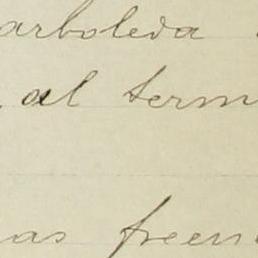 arboleda
al term
as freen